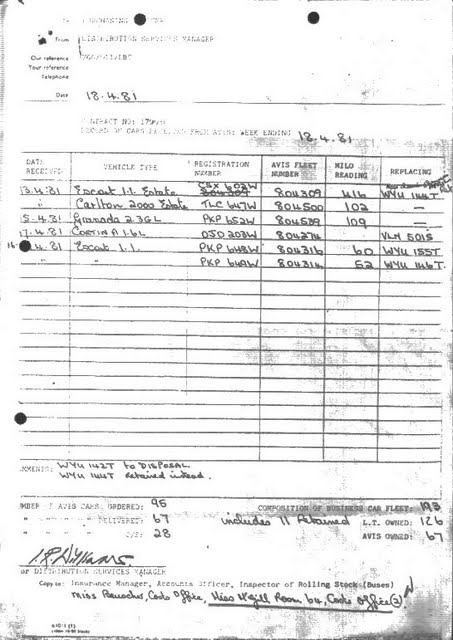 From DISTRIBUTION SERVICES MANAGER
Our reference
Your reference
Telephone
Date 18.4.81
CONTRACT NO:
RECORD OF CARS RECEIVED FROM AVIS: WEEK ENDING 18.4.81
DATE RECEIVED VEHICLE TYPE REGISTRATION NUMBER AVIS FLEET NUMBER MILO READING REPLACING
CSX 602W
13.4.81 Escort 1.1. Estate 804309 416 WYU 144T
" Carlton 2000 Estate TLC 647W 804500 102 —
15.4.81 Granada 2.3GL PKP 652W 804539 109 —
17.4.81 CORTINA 1.6L OSD 203W 804274 VLM 501S
16.4.81 Escort 1.1. PKP 648W 804316 60 WYU 155T
" PKP 649W 804314 52 WYU 146T.
COMMENTS: WYU 142T to DISPOSAL
WYU 144T retained instead.
NUMBER OF AVIS CARS: ORDERED: 95 COMPOSITION OF BUSINESS CAR FLEET: 193
" " " " DELIVERED: 67 includes 11 Retained L.T. OWNED: 126
" " " " O/S: 28 AVIS OWNED: 67
DISTRIBUTION SERVICES MANAGER
Copy to: Insurance Manager, Accounts Officer, Inspector of Rolling Stock (Buses)
Miss Cards Office, Miss Room 64, Cards Office (2)